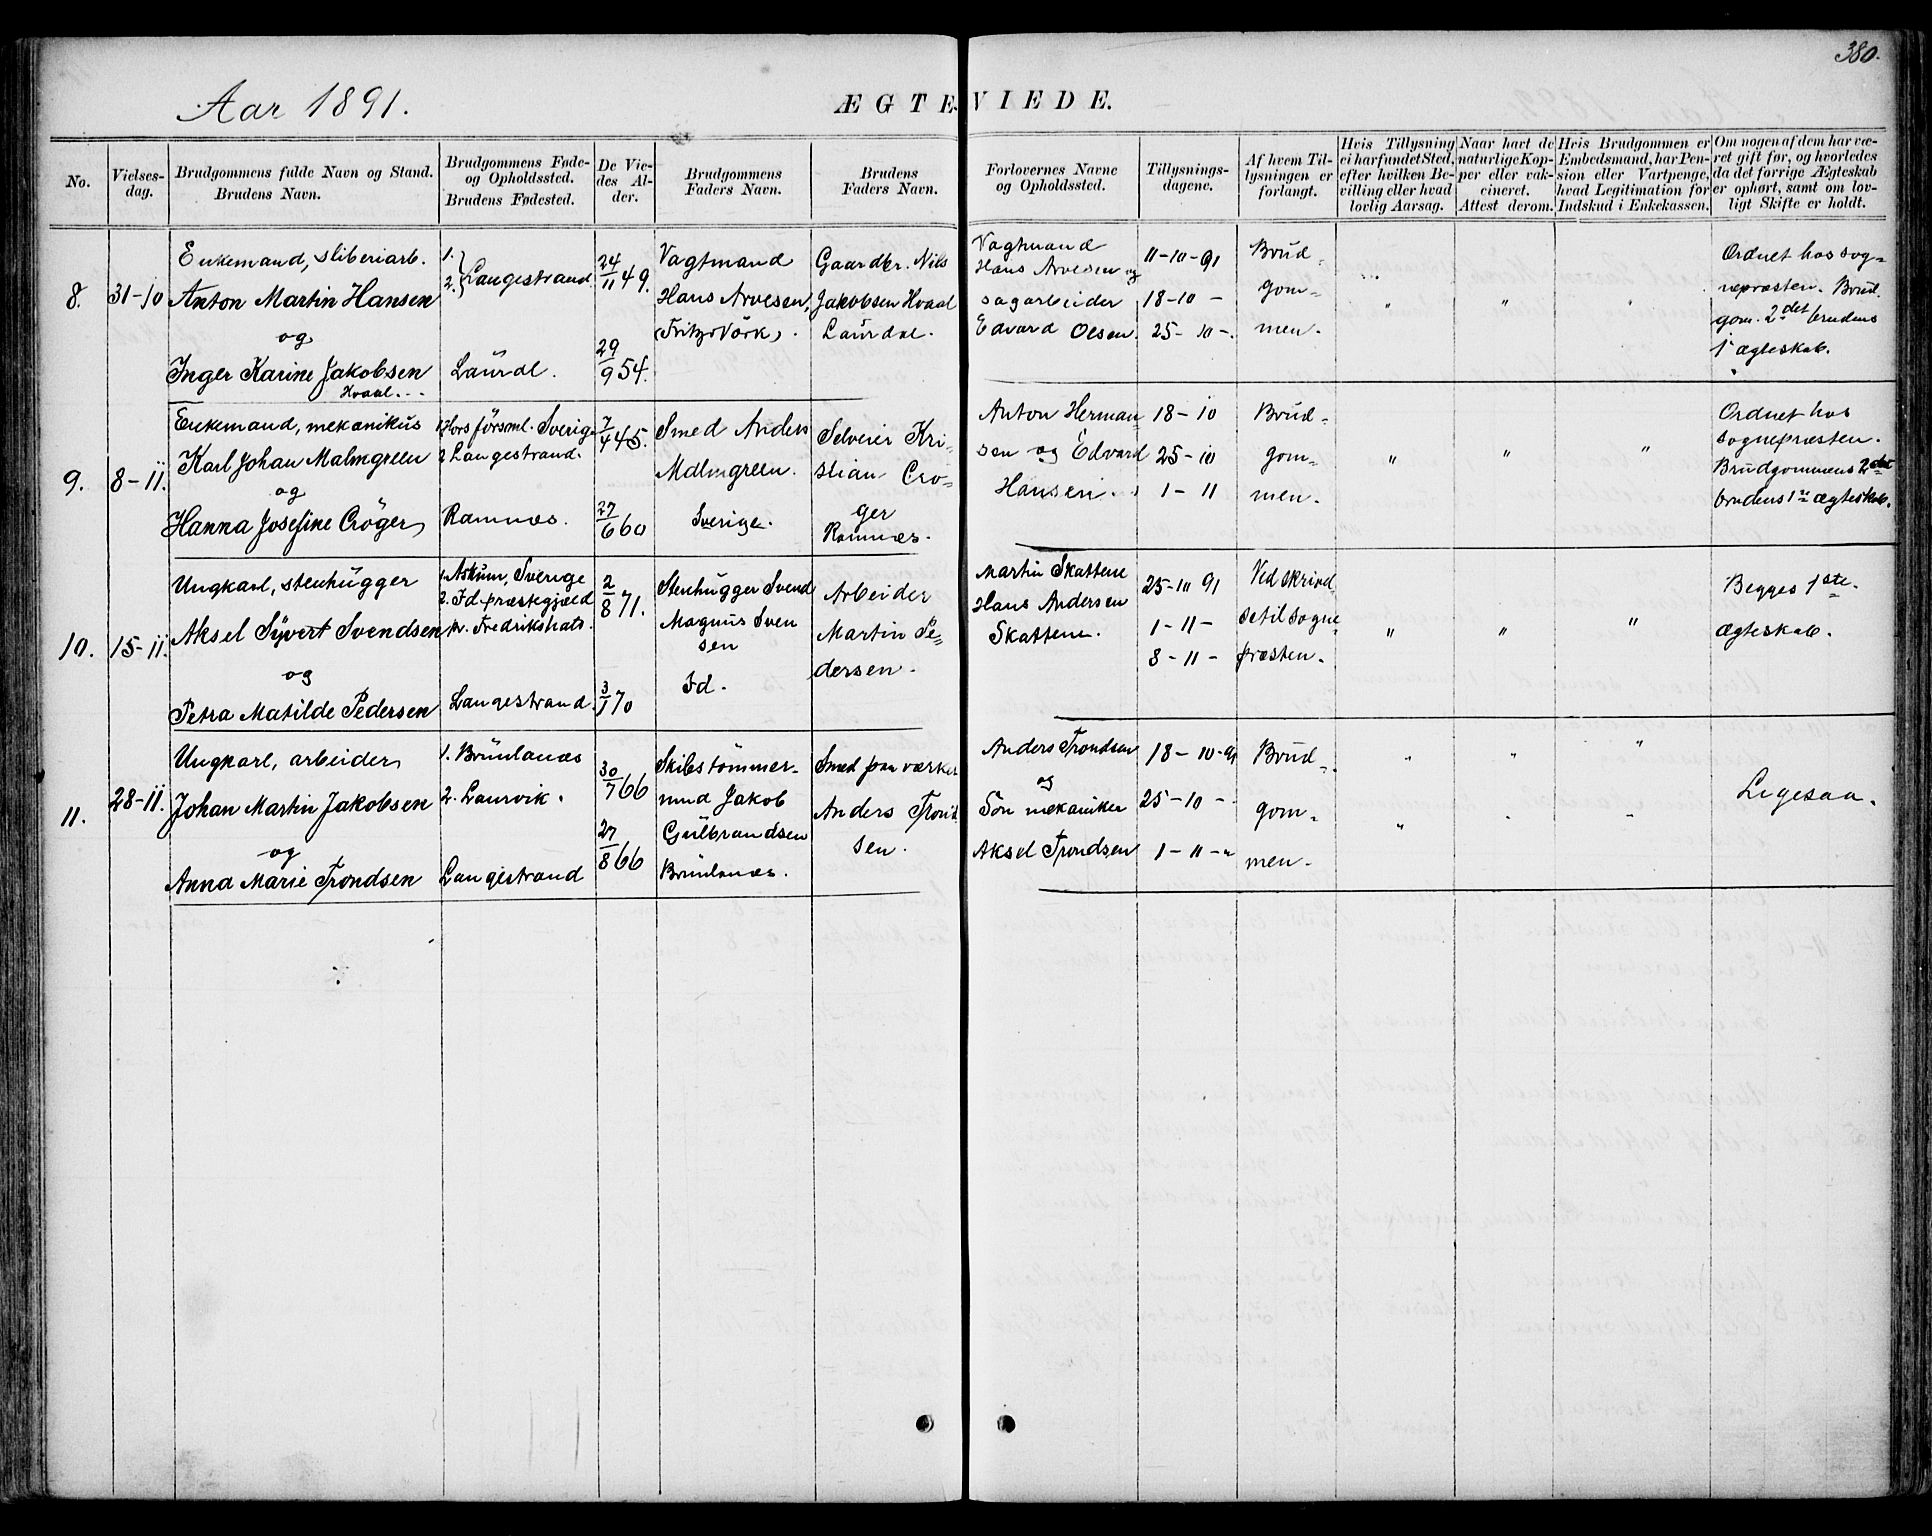 380.
Aar 1891.
ÆGTEVIEDE.
No.
Vielses-
dag.
Brudgommens fulde Navn og Stand.
Brudens Navn.
Brudgommens Føde-
og Opholdssted.
Brudens Fødested.
De Vie-
des Al-
der.
Brudgommens
Faders Navn.
Brudens
Faders Navn.
Forlovernes Navne
og Opholdssted.
Tillysnings-
dagene.
Af hvem Til-
lysningen er
forlangt.
Hvis Tillysning
ei har fundet Sted,
efter hvilken Be-
villing eller hvad
lovlig Aarsag.
Naar havt de
naturlige Kop-
per eller vak-
cineret.
Attest derom.
Hvis Brudgommen er
Embedsmand, har Pen-
sion eller Vartpenge,
hvad Legitimation for
Indskud i Enkekassen.
Om nogen af dem har væ-
ret gift før, og hvorledes
da det forrige Ægteskab
er ophørt, samt om lov-
ligt Skifte er holdt.
8.
31-10
Enkemand, sliberiarb.
Anton Martin Hansen
og
Inger Karine Jakobsen
Hvaal.
1.
2. Langestrand
Laurdl.
24/11 49.
29/9 54.
Vagtmand
Hans Arvesen,
(Fritzø Værk).
Gaardbr. Nils
Jakobsen Hvaal
Laurdal.
Vagtmand
Hans Arvesen og
sagarbeider
Edvard Olsen.
11-10-91
18-10 -
25-10 -.
Brud-
gom-
men.
"
"
"
Ordnet hos sog-
nepræsten. Brud.
gom. 2det brudens
1ste ægteskab.
9.
8-11.
Enkemand, mekanikus
Karl Johan Malmgreen
og
Hanna Josefine Crøger
1. Hors försml. Sverige
2 Langestrand.
Ramnæs.
7/4 45.
27/6 60
Smed Anders
Malmgreen.
Sverige.
Selveier Kri-
stian Crö-
ger
Ramnæs.
Anton Herman
sen og Edvard
Hansen.
18-10
25-10
1-11
Brud-
gom-
men.
"
"
"
Ordnet hos
sognepræsten.
Brudgommens 2det
brudens 1ste ægteskab.
10.
15-11.
Ungkarl, stenhugger
Aksel Syvert Svendsen
og
Petra Matilde Pedersen
1. Askum, Sverige
2. Id præstegjæld
pr. Fredrikshals.
Langestrand.
2/8 71.
3/1 70
Stenhugger Svend
Magnus Sven
sen
Id.
Arbeider
Martin Pe-
dersen.
Martin Skattene
Hans Andersen
Skattene.
25-10 91
1-11-
8-11-
Ved skrivel
se til sogne
præsten.
"
"
"
Begges 1ste
ægteskab.
11.
28-11.
Ungkarl, arbeider
Johan Martin Jakobsen
og
Anna Marie Trondsen
1. Brunlanæs
2. Laurvik.
Langestrand
30/7 66
27/8 66
Skibstømmer-
mnd Jakob
Gulbrandsen
Brunlanæs.
Smed paa værket
Anders Trond
sen.
Anders Trondsen
og
Søn mekaniker
Aksel Trondsen
18-10-91
25-10-
1-11-"
Brud-
gom-
men.
"
"
"
"
Ligesaa.